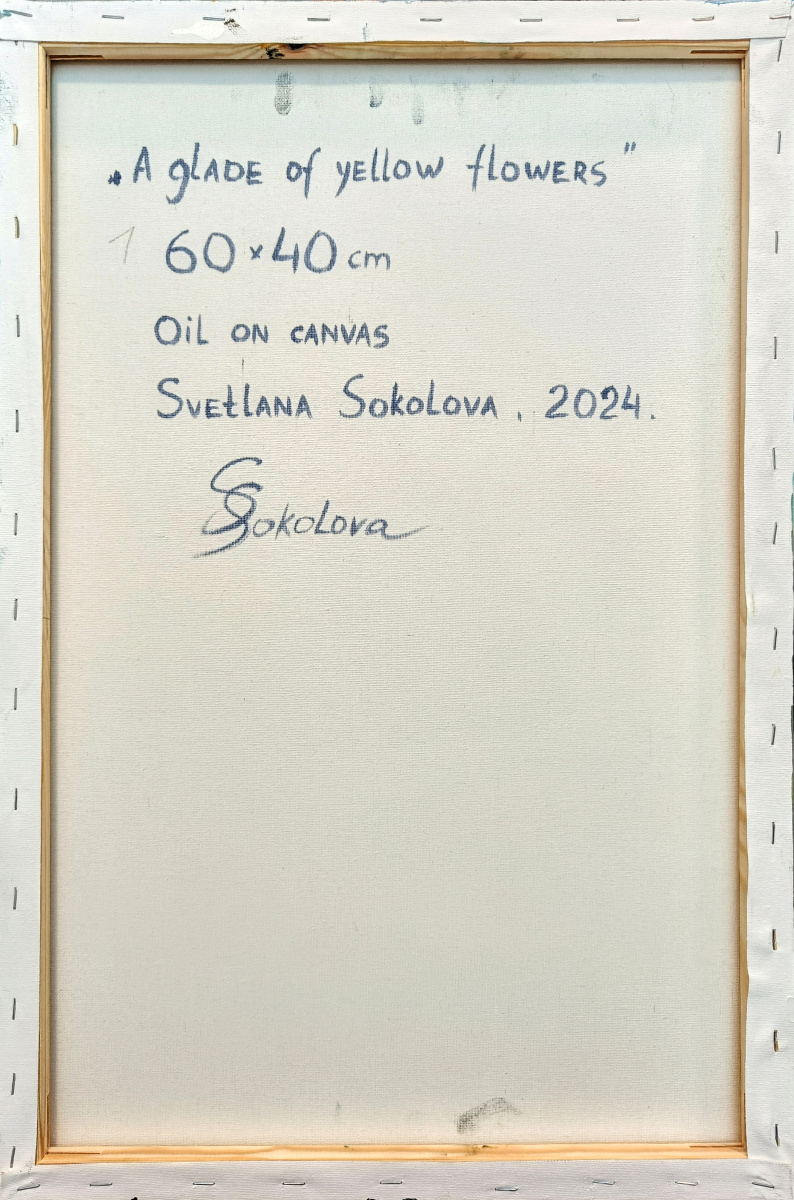 „A glade of yellow flowers"
1 60×40 cm
Oil on canvas
Svetlana Sokolova, 2024.
SSokolova